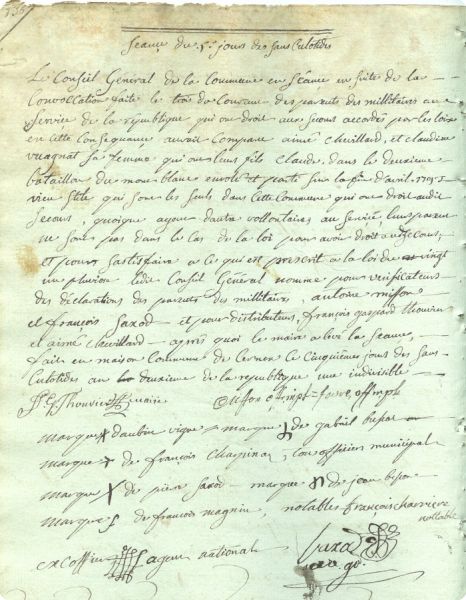 Séance du 5e jours des Sans Culotides
Le Conseil General de la Commune en Séance en suite de la
Convoccation faite le trois du Courant des parents des millitaires au
Service de la republique qui ont droit aux secours accordés par les loix
en cette Consequance auroit Comparu aimé chevillard, et claudine
vuagnat sa femme, qui ont leur fils Claude, dans le deuxieme
bataillon du mont blanc enrolé et parti sur la fin d'avril 1793
vieu Stile qui sont les seuls dans Cette Commune qui ont droit audit
Secours, quoique ayent dautre vollontaires au Service, leurs parent
ne sont pas dans le cas de la loi pour avoir droit au Secours,
et pour Sastisfaire a ce qui est prescrit a la loi du vingt
un pluviose ledit Conseil Général nomme pour verificateurs
des déclarations des parents des millitaires, antoine
et françois Saxod et pour distributeurs, françois gaspard thouvier
et aimé chevillard — après quoi le maire a levé la Seance,
fait en maison Commune de Cernex le Cinquième jours des Sans
Culotides an deuxieme de la republique une indivisible
F. G. Thouvier maire
marque de françois officiers municipal
marque de pierre Saxod — marque de jean
marque de françois magnin, notables françois charriere
nottable
agent national
Saxod